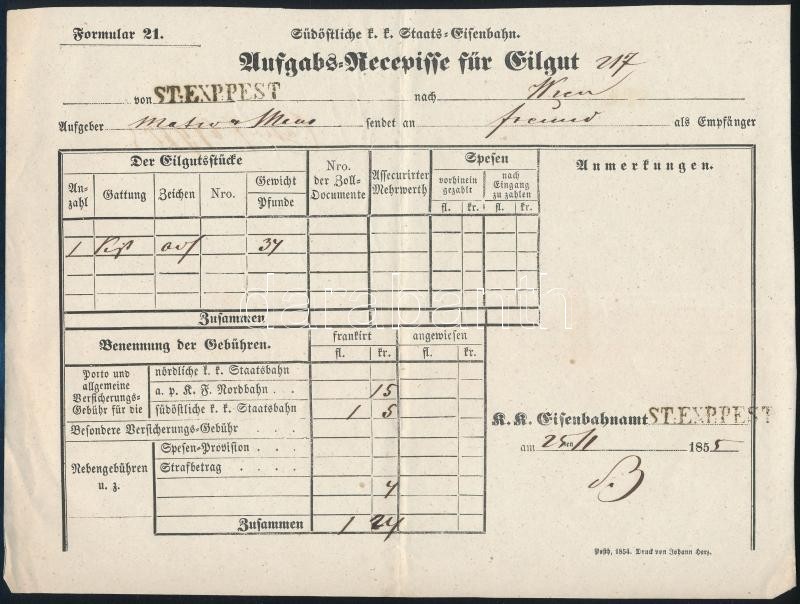 Formular 21.
Südöstliche k. k. Staats-Eisenbahn.
Aufgabs-Recepisse für Eilgut 217
von ST:EXP.PEST nach Wien
Aufgeber sendet an Freund als Empfänger
Der Eilgutsstücke
Anzahl
Gattung
Zeichen
Nro.
Gewicht
Pfunde
Nro. der Zoll-Documente
Assecurirter Mehrwerth
Spesen
vorhinein gezahlt
nach Eingang zu zahlen
fl. kr. fl. kr.
Anmerkungen.
1 37
Zusammen
darabanth
Benennung der Gebühren.
frankirt
angewiesen
fl. kr. fl. kr.
Porto und allgemeine Versicherungs-Gebühr für die
nördliche k. k. Staatsbahn
a. p. K. F. Nordbahn . . . 15
südöstliche k. k. Staatsbahn 1 5
Besondere Versicherungs-Gebühr . . .
Nebengebühren u. z.
Spesen-Provision . . . .
Strafbetrag . . . .
4
Zusammen 1 24
K. K. Eisenbahnamt ST:EXP.PEST
am 25/11 1855
Pesth, 1854. Druck von Johann Herz.